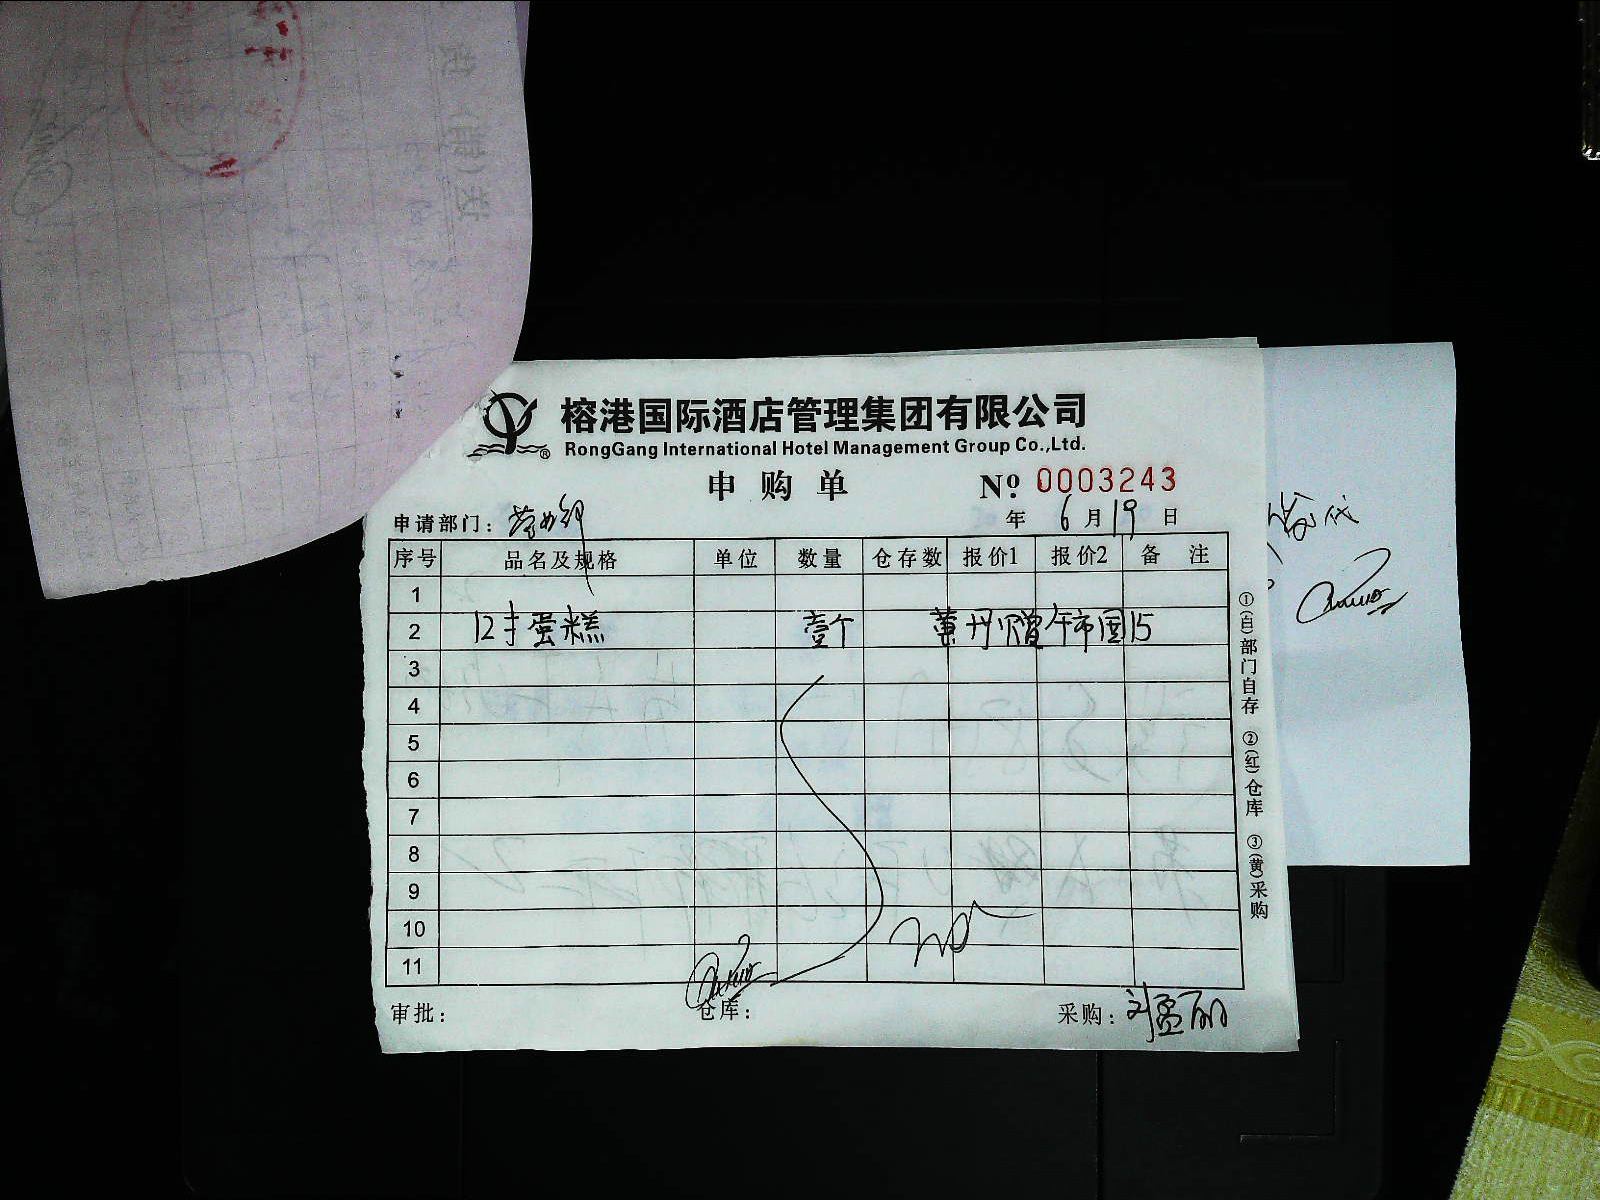 榕港国际酒店管理集团有限公司
RongGang International Hotel Management Group Co.,Ltd.
申购单 Nº 0003243
申请部门: 营业部 年 6月19日
序号 品名及规格 单位 数量 仓存数 报价1 报价2 备注
1
2 12寸蛋糕 壹个 午市国15
3
4
5
6
7
8
9
10
11
审批: 仓库: 采购: 刘孟丽
①(白)部门自存 ②(红)仓库 ③(黄)采购